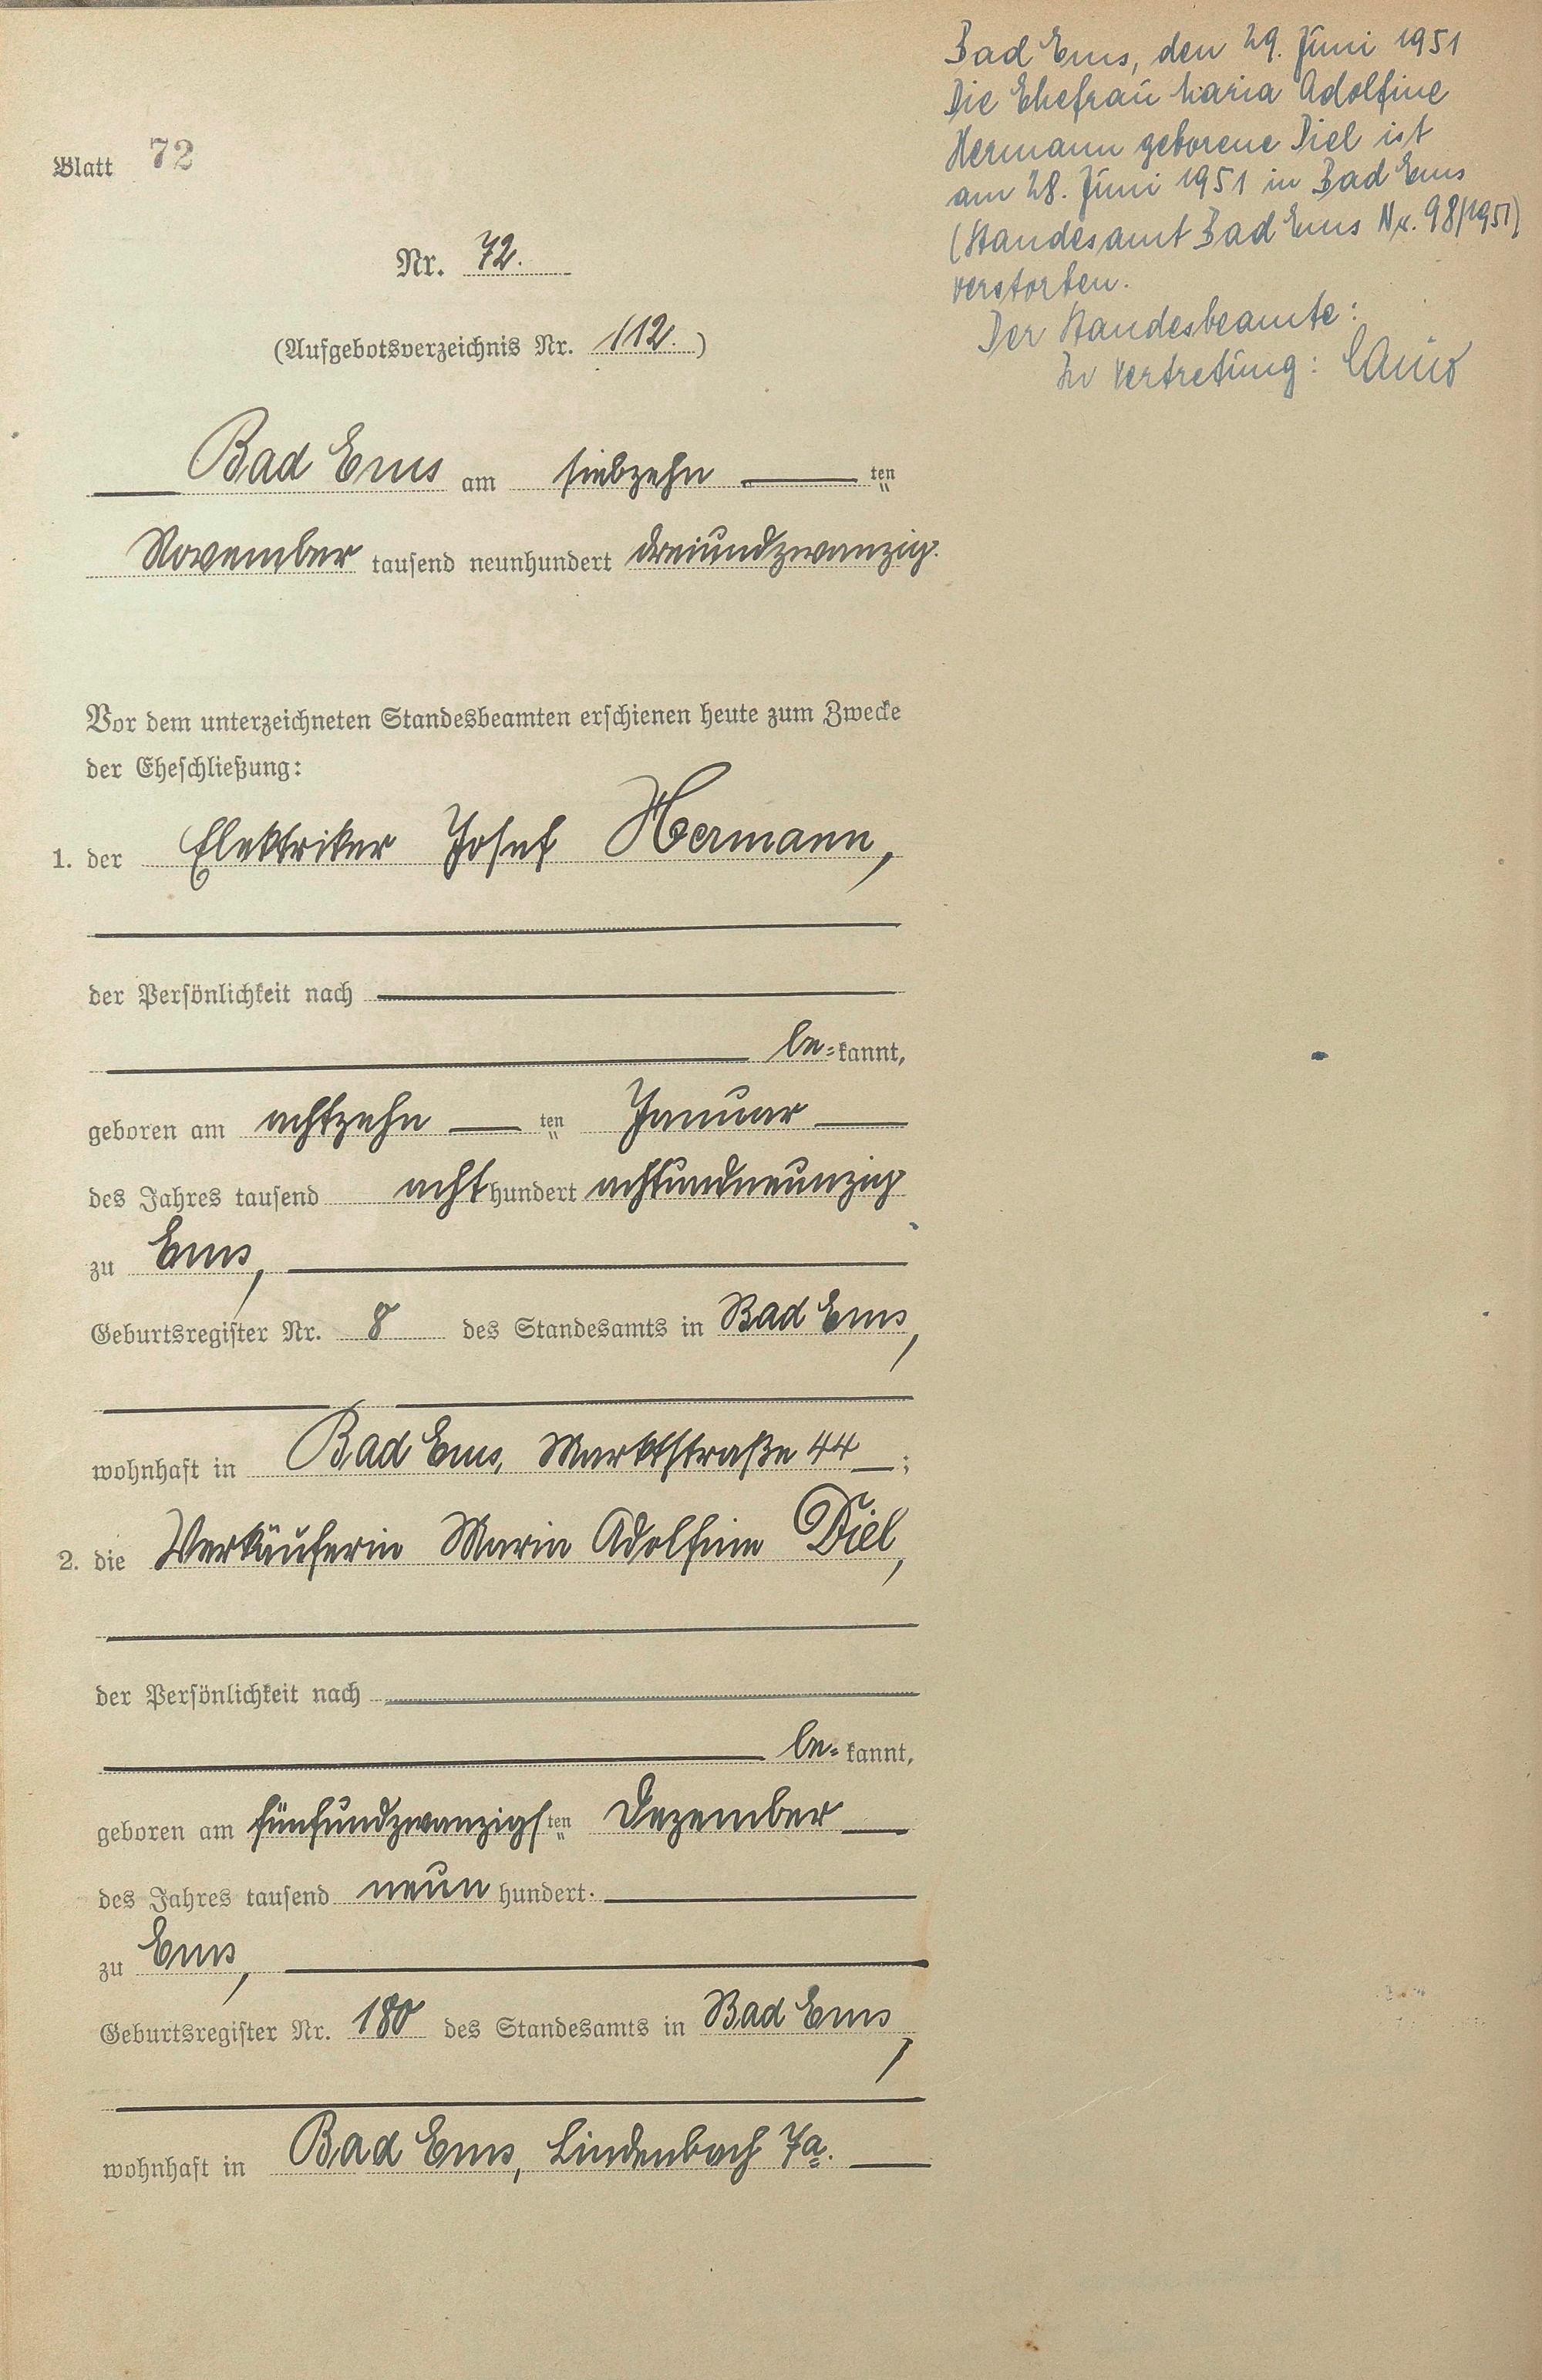 Bad Ems, den 29. Juni 1951
Die Ehefrau Maria Adolfine
Hermann geborene Diel ist
am 28. Juni 1951 in Bad Ems
(Standesamt Bad Ems Nr. 98/1951)
verstorben.
Der Standesbeamte:
In Vertretung:
Blatt 72
Nr. 72.
(Aufgebotsverzeichnis Nr. 112.)
Bad Ems am siebzehn ten
November tausend neunhundert dreiundzwanzig.
Vor dem unterzeichneten Standesbeamten erschienen heute zum Zwecke
der Eheschließung:
1. der Elektriker Josef Hermann,
der Persönlichkeit nach
be=kannt,
geboren am achtzehn ten Januar
des Jahres tausend acht hundert achtundneunzig
zu Ems,
Geburtsregister Nr. 8 des Standesamts in Bad Ems,
wohnhaft in Bad Ems, Marktstraße 44 ;
2. die Verkäuferin Maria Adolfine Diel,
der Persönlichkeit nach
be= kannt,
geboren am fünfundzwanzigsten Dezember
des Jahres tausend neun hundert.
zu Ems,
Geburtsregister Nr. 180 des Standesamts in Bad Ems,
wohnhaft in Bad Ems, Lindenbach 7a.